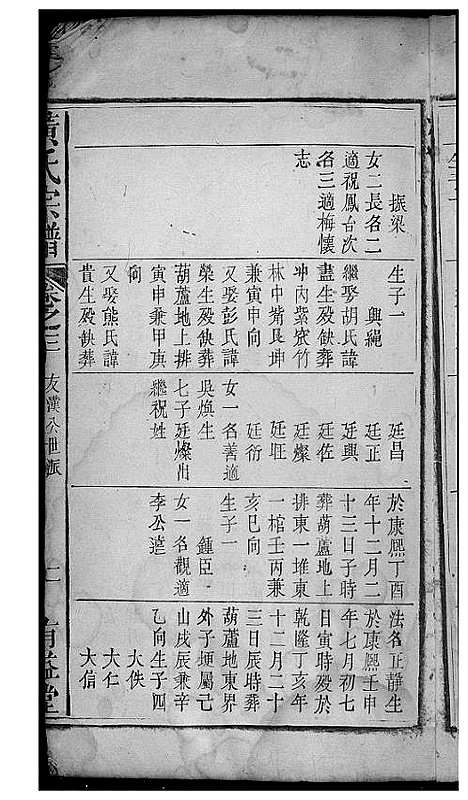 振梁
女二長名二
適祝鳳台次
名三適梅懷
志
生子一
興繩
繼娶胡氏諱
盡生歿缺葬
冲內紫荻竹
林中觜艮坤
兼寅申向
又娶彭氏諱
榮生歿缺葬
葫蘆地上排
寅申兼甲庚
向
又娶熊氏諱
貴生歿缺葬
廷昌
廷正
廷興
廷佐
廷燦
廷旺
廷衍
女一名善適
吳煥生
七子廷燦出
繼祝姓
於康熙丁酉
年十二月二
十三日子時
葬葫蘆地上
排東一堆東
一棺壬丙兼
亥巳向
生子一
鍾臣
女一名觀適
李公遠
法名正靜生
於康熙壬申
年七月初七
日寅時歿於
乾隆丁亥年
十二月二十
三日辰時葬
葫蘆地東界
外子塝屬己
山戌辰兼辛
乙向生子四
大佚
大仁
大信
黃氏宗譜
卷之三
友漢公世派
有益堂